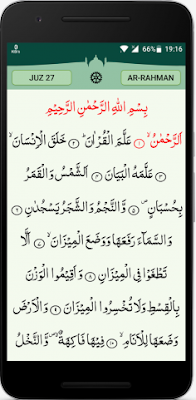 0 66% 19:16
JUZ 27 AR-RAHMAN
بِسْمِ اللّٰهِ الرَّحْمٰنِ الرَّحِيْمِ
اَلرَّحْمٰنُۙ ١ عَلَّمَ الْقُرْاٰنَۗ ٢ خَلَقَ الْاِنْسَانَۙ
٣ عَلَّمَهُ الْبَيَانَ ٤ اَلشَّمْسُ وَالْقَمَرُ
بِحُسْبَانٍۙ ٥ وَّالنَّجْمُ وَالشَّجَرُ يَسْجُدٰنِ ٦
وَالسَّمَاۤءَ رَفَعَهَا وَوَضَعَ الْمِيْزَانَۙ ٧ اَلَّا
تَطْغَوْا فِى الْمِيْزَانِ ٨ وَاَقِيْمُوا الْوَزْنَ
بِالْقِسْطِ وَلَا تُخْسِرُوا الْمِيْزَانَ ٩ وَالْاَرْضَ
وَضَعَهَا لِلْاَنَامِۙ ١٠ فِيْهَا فَاكِهَةٌ وَّالنَّخْلُ